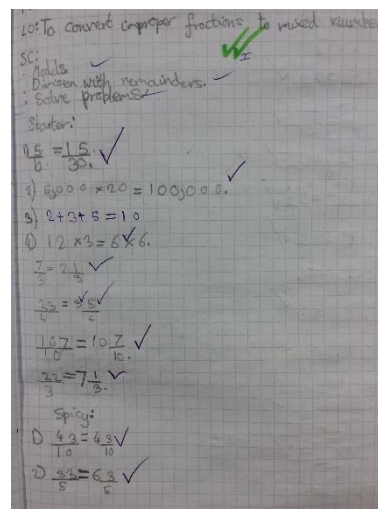 LO: To convert improper fractions to mixed numbe
SC:
: Molds
: Division with remainders.
: Solve problems
Starter:
1) 5/6 = 15/30.
2) 5,000 × 20 = 100,000.
3) 2+3+5=10
4) 12 × 3 = 6 × 6.
7/3 = 2 1/3
107/10 = 10 7/10.
22/3 = 7 1/3.
Spicy:
1) 43/10 = 4 3/10
2) 33/5 = 6 3/5